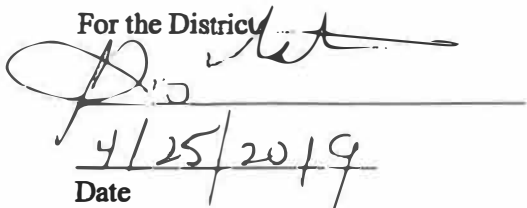 For the District
4/25/2019
Date